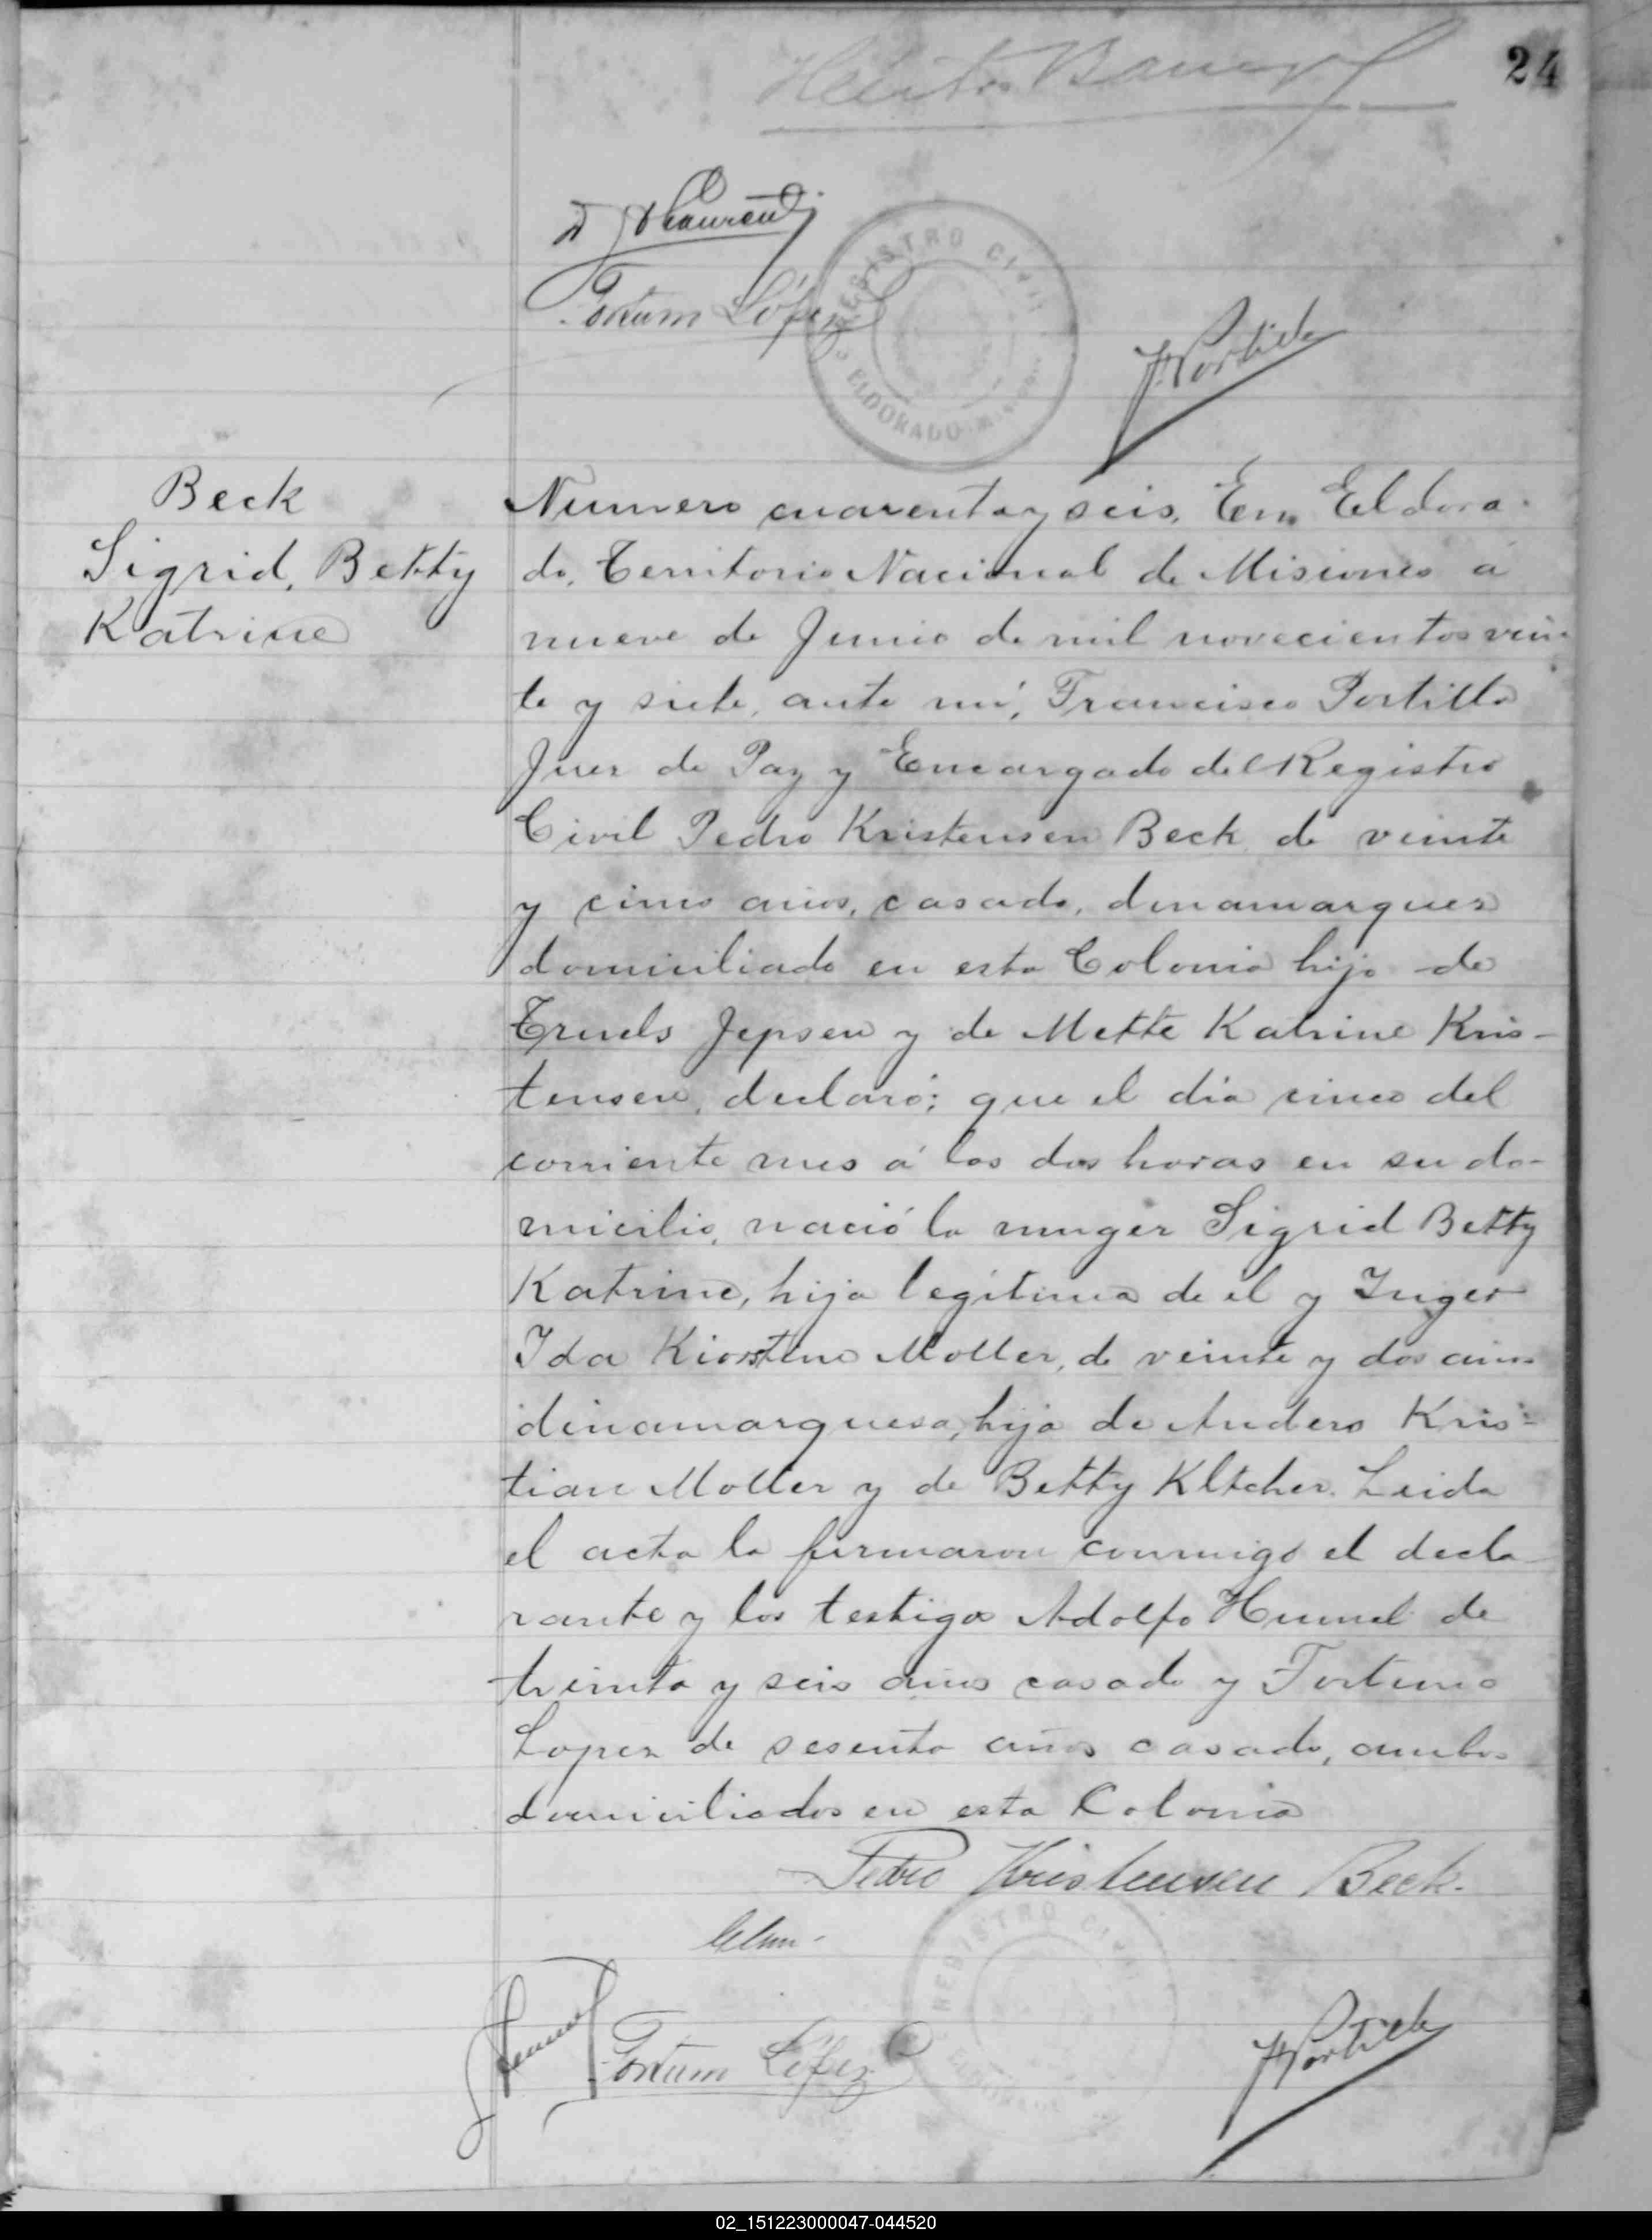 24
Fortun López
REGISTRO CIVIL
ELDORADO
F Portillo
Beck
Sigrid, Betty
Katrine
Numero cuarenta y seis. En Eldora-
do, Territorio Nacional de Misiones á
nueve de Junio de mil novecientos vein-
te y siete, ante mi, Francisco Portillo
Juez de Paz y Encargado del Registro
Civil Pedro Kristensen Beck de veinte
y cinco años, casado, dinamarques
domiciliado en esta Colonia hijo de
Truels Jepsen y de Mette Katrine Kris-
tensen, declaró: que el dia cinco del
corriente mes á las dos horas en su do-
micilio, nació la muger Sigrid Betty
Katrine, hija legitima de él y Inger
Ida Kiorstine Moller, de veinte y dos años
dinamarquesa, hija de Anders Kris-
tian Moller y de Betty Kltcher. Leida
el acta la firmaron conmigo el decla
rante y los testigos Adolfo Hummel de
treinta y seis años casado y Fortuno
Lopez de sesenta años casado, ambos
domiciliados en esta Colonia
Pedro Kristensen Beck.
Hummel
Fortun López
REGISTRO CIVIL
ELDORADO
F Portillo
02_151223000047-044520